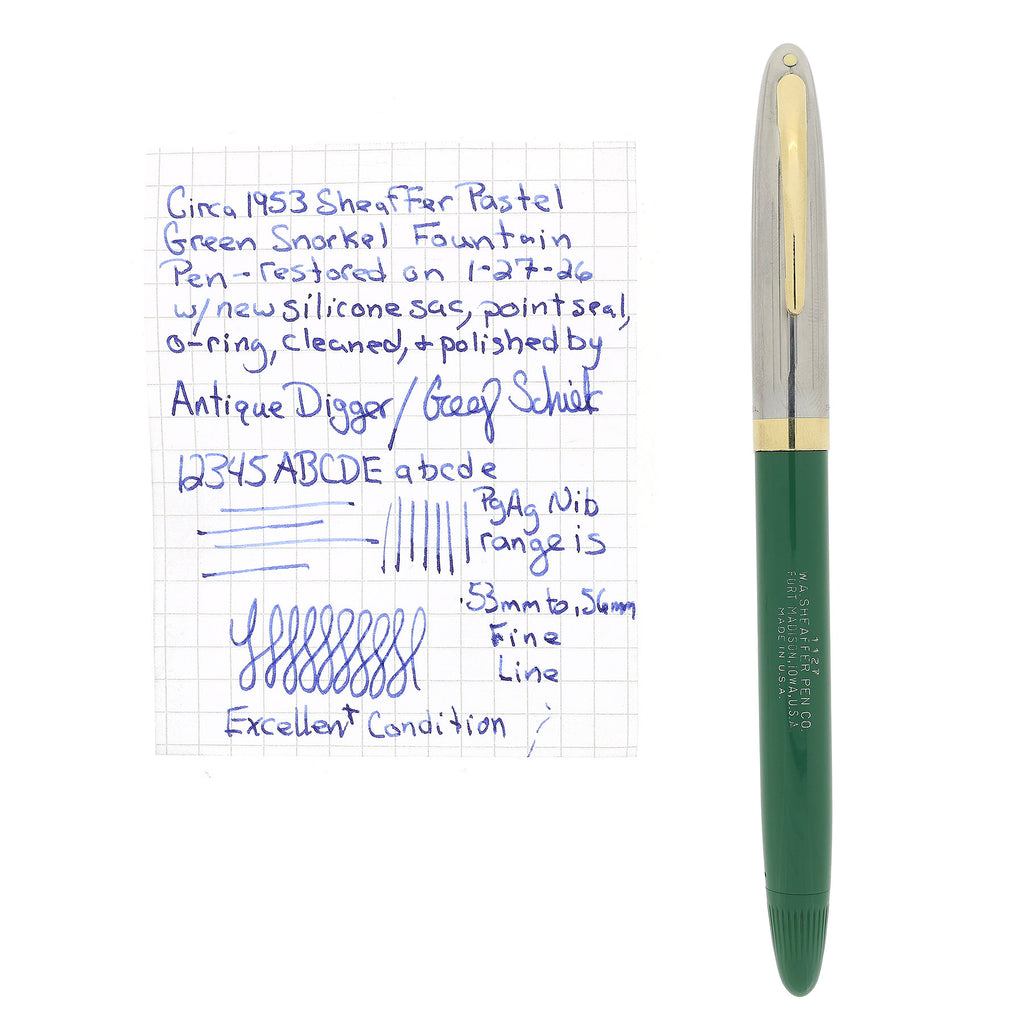 Circa 1953 Sheaffer Pastel
Green Snorkel Fountain
Pen - restored on 1-27-26
w/ new silicone sac, point seal,
o-ring, cleaned, + polished by
Antique Digger /
12345 ABCDE abcde
PgAg Nib
range is
.53mm to .56mm
Fine
Line
Excellent Condition
1127
W.A. SHEAFFER PEN CO.
FORT MADISON, IOWA, U.S.A
MADE IN U.S.A.